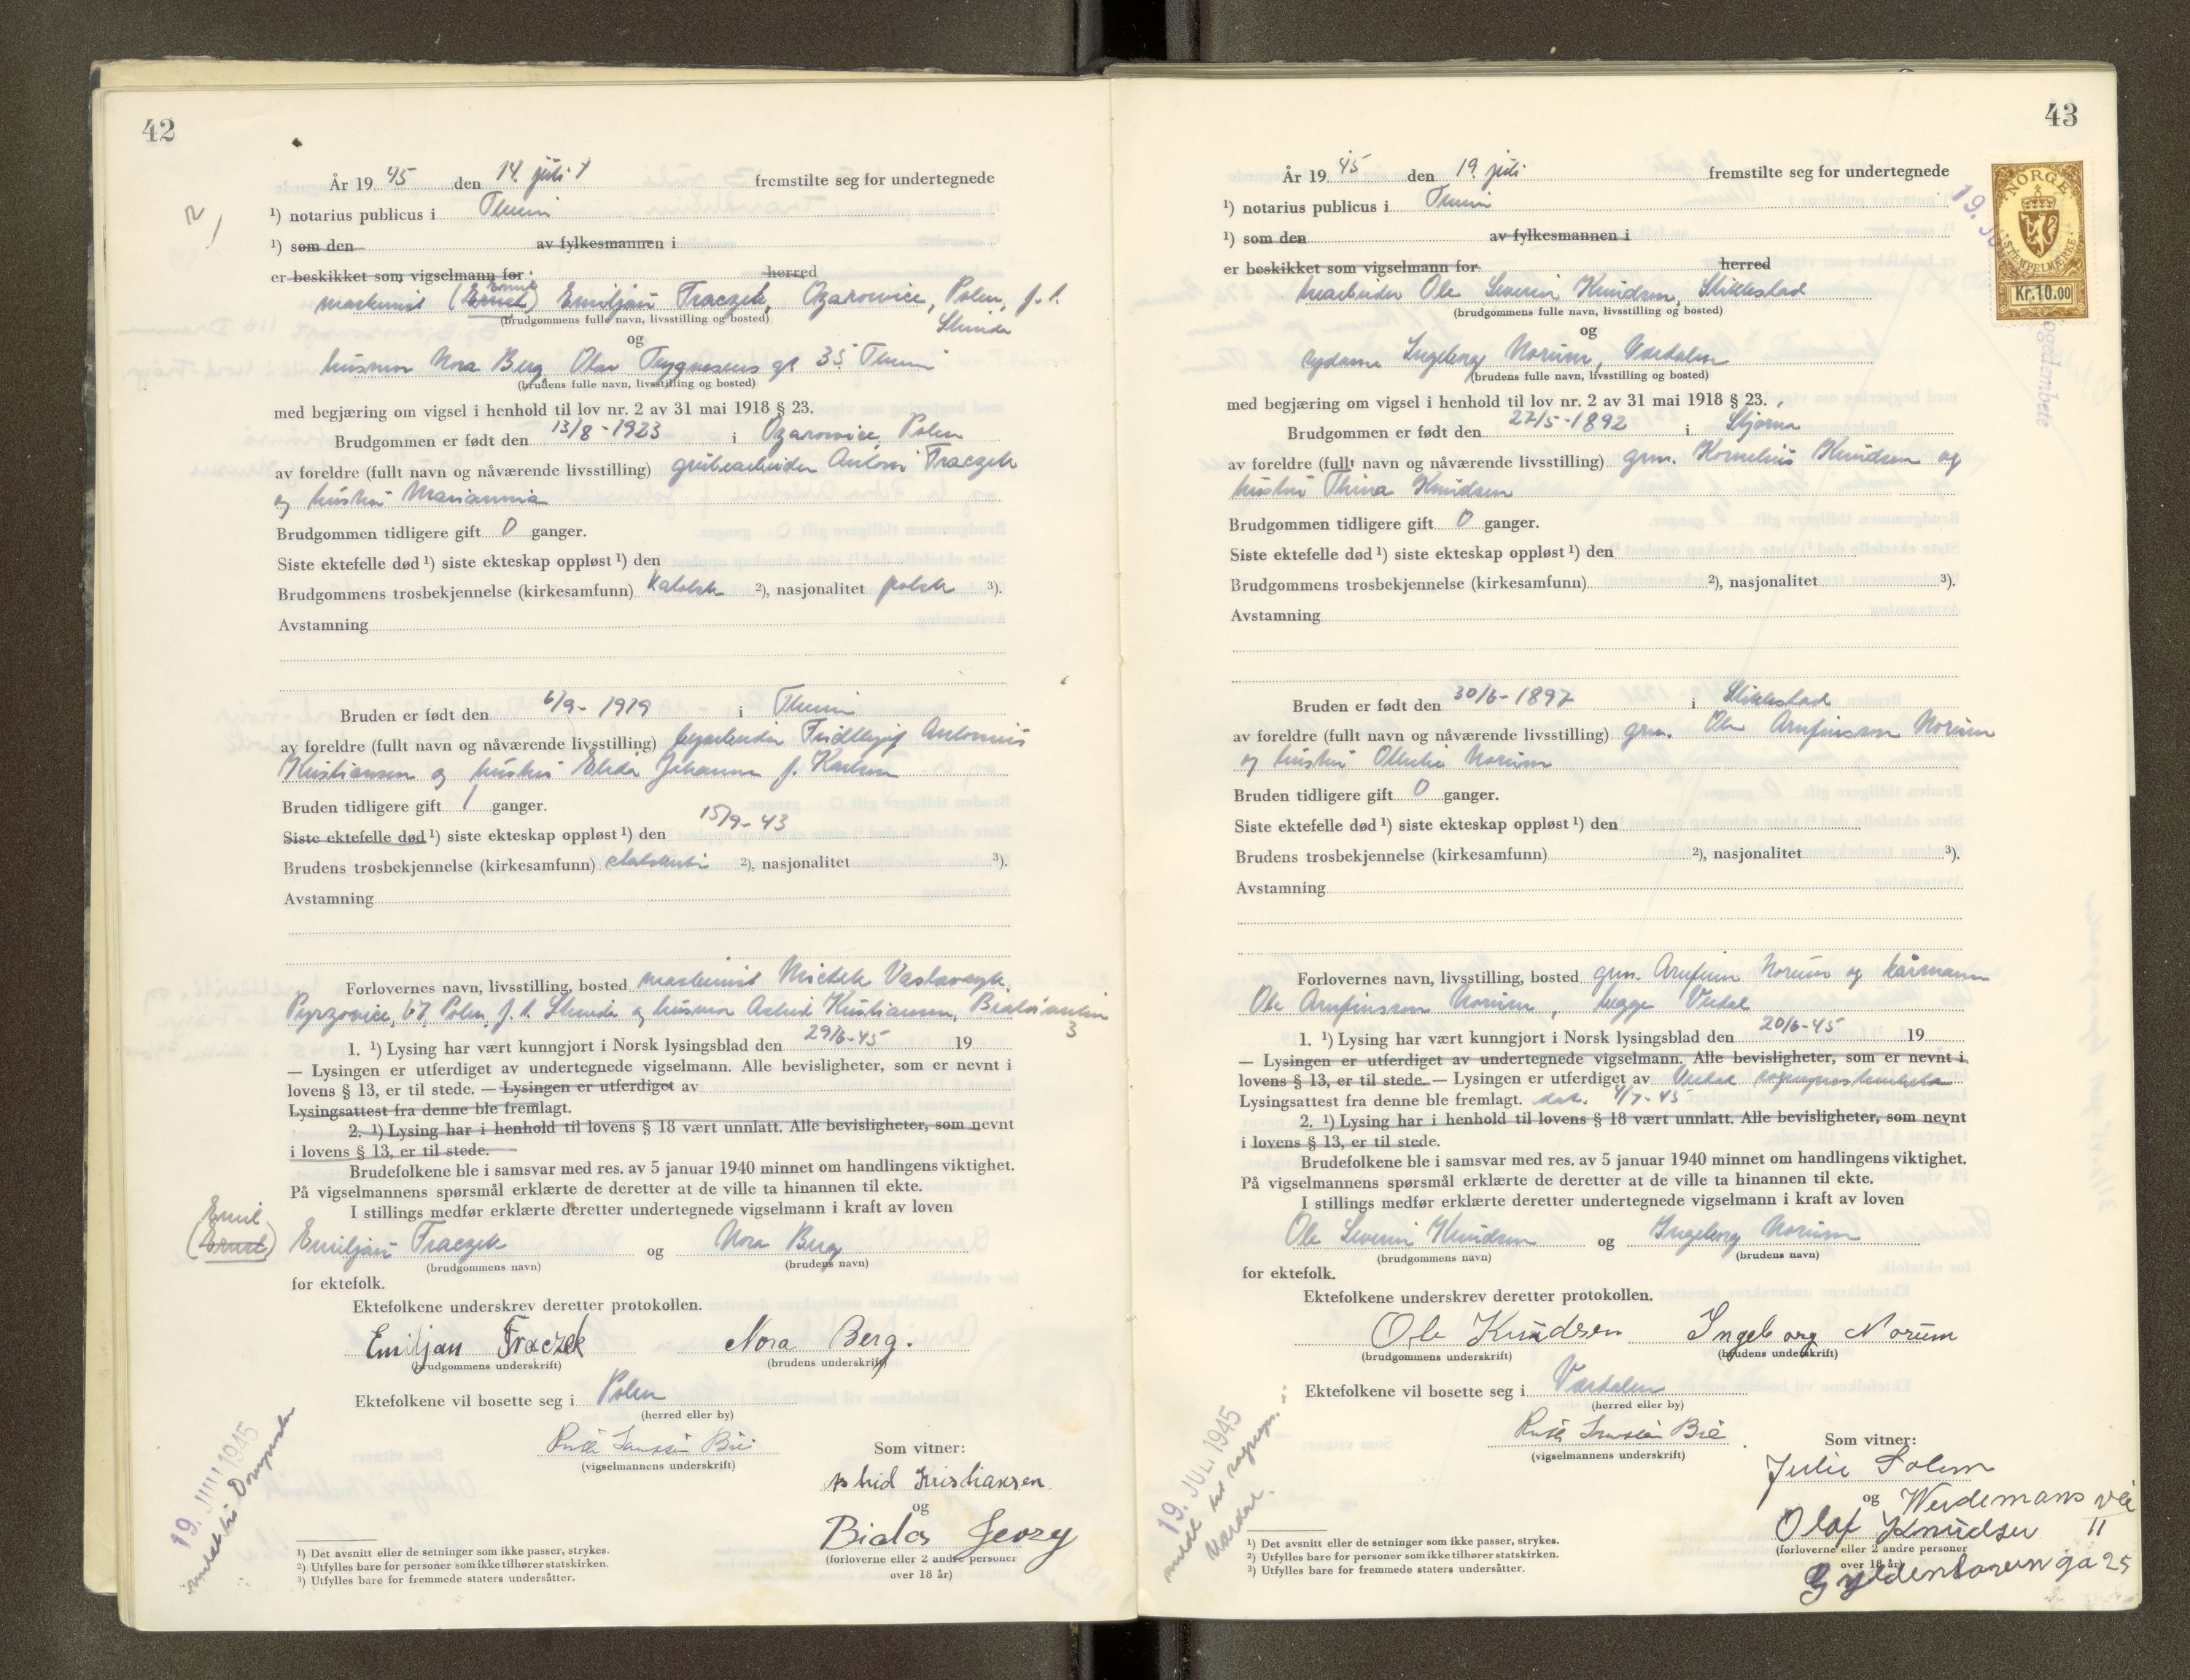 42
År 19 45 den 14. juli fremstilte seg for undertegnede
¹) notarius publicus i
¹) som den av fylkesmannen i
er beskikket som vigselmann for herred
maskinist (Ernst) Emil Emiljan Traczek, Ozarowice, Polen, f. t.
(brudgommens fulle navn, livsstilling og bosted)
og
husmor Nora Berg, Olav Trygvasons gt 35
(brudens fulle navn, livsstilling og bosted)
med begjæring om vigsel i henhold til lov nr. 2 av 31 mai 1918 § 23.
Brudgommen er født den 13/8-1923 i Ozarowice, Polen
av foreldre (fullt navn og nåværende livsstilling) grubearbeider Antoni Traczek
og hustru Marianna
Brudgommen tidligere gift 0 ganger.
Siste ektefelle død ¹) siste ekteskap oppløst ¹) den
Brudgommens trosbekjennelse (kirkesamfunn) katolsk ²), nasjonalitet polsk ³).
Avstamning
Bruden er født den 6/9-1919 i
av foreldre (fullt navn og nåværende livsstilling)
Kristiansen og hustru Johanna f.
Bruden tidligere gift 1 ganger.
Siste ektefelle død ¹) siste ekteskap oppløst ¹) den 15/9-43
Brudens trosbekjennelse (kirkesamfunn) ²), nasjonalitet ³).
Avstamning
Forlovernes navn, livsstilling, bosted maskinist
Pyrzowice, 67, Polen, f. t. og husmor Astrid Kristiansen,
3
1. ¹) Lysing har vært kunngjort i Norsk lysingsblad den 29/6-45 19
— Lysingen er utferdiget av undertegnede vigselmann. Alle bevisligheter, som er nevnt i
lovens § 13, er til stede. — Lysingen er utferdiget av
Lysingsattest fra denne ble fremlagt.
2. ¹) Lysing har i henhold til lovens § 18 vært unnlatt. Alle bevisligheter, som nevnt
i lovens § 13, er til stede.
Brudefolkene ble i samsvar med res. av 5 januar 1940 minnet om handlingens viktighet.
På vigselmannens spørsmål erklærte de deretter at de ville ta hinannen til ekte.
I stillings medfør erklærte deretter undertegnede vigselmann i kraft av loven
Emil
(Ernst) Emiljan Traczek og Nora Berg
(brudgommens navn) (brudens navn)
for ektefolk.
Ektefolkene underskrev deretter protokollen.
Emiljan Traczek Nora Berg.
(brudgommens underskrift) (brudens underskrift)
Ektefolkene vil bosette seg i Polen
(herred eller by)
(vigselmannens underskrift)
Som vitner:
Astrid Kristiansen
og
Bialas Jerzy
(forloverne eller 2 andre personer
over 18 år)
19. JULI 1945
¹) Det avsnitt eller de setninger som ikke passer, strykes.
²) Utfylles bare for personer som ikke tilhører statskirken.
³) Utfylles bare for fremmede staters undersåtter.
43
År 19 45 den 19. juli fremstilte seg for undertegnede
¹) notarius publicus i
¹) som den av fylkesmannen i
er beskikket som vigselmann for herred
NORGE
STEMPELMERKE
Kr.10.00
Ole Severin Knudsen, Stiklestad
(brudgommens fulle navn, livsstilling og bosted)
og
sydame Ingeborg Norum, Værdalen
(brudens fulle navn, livsstilling og bosted)
med begjæring om vigsel i henhold til lov nr. 2 av 31 mai 1918 § 23.
Brudgommen er født den 27/5-1892 i Stjørna
av foreldre (fullt navn og nåværende livsstilling) grm. Kornelius Knudsen og
hustru Thina Knudsen
Brudgommen tidligere gift 0 ganger.
Siste ektefelle død ¹) siste ekteskap oppløst ¹) den
Brudgommens trosbekjennelse (kirkesamfunn) ²), nasjonalitet ³).
Avstamning
Bruden er født den 30/6-1897 i Stiklestad
av foreldre (fullt navn og nåværende livsstilling) grm. Ole Arnfinsson Norum
og hustru Norum
Bruden tidligere gift 0 ganger.
Siste ektefelle død ¹) siste ekteskap oppløst ¹) den
Brudens trosbekjennelse (kirkesamfunn) ²), nasjonalitet ³).
Avstamning
Forlovernes navn, livsstilling, bosted grm. Arnfinn Norum og kårmann
Ole Arnfinsson Norum, begge Verdal
1. ¹) Lysing har vært kunngjort i Norsk lysingsblad den 20/6-45 19
— Lysingen er utferdiget av undertegnede vigselmann. Alle bevisligheter, som er nevnt i
lovens § 13, er til stede. — Lysingen er utferdiget av Verdal
Lysingsattest fra denne ble fremlagt. dat. 4/7-45
2. ¹) Lysing har i henhold til lovens § 18 vært unnlatt. Alle bevisligheter, som nevnt
i lovens § 13, er til stede.
Brudefolkene ble i samsvar med res. av 5 januar 1940 minnet om handlingens viktighet.
På vigselmannens spørsmål erklærte de deretter at de ville ta hinannen til ekte.
I stillings medfør erklærte deretter undertegnede vigselmann i kraft av loven
Ole Severin Knudsen og Ingeborg Norum
(brudgommens navn) (brudens navn)
for ektefolk.
Ektefolkene underskrev deretter protokollen.
Ole Knudsen Ingeborg Norum
(brudgommens underskrift) (brudens underskrift)
Ektefolkene vil bosette seg i Værdalen
(herred eller by)
(vigselmannens underskrift)
Som vitner:
Julie Solem
og Weidemans vei
Olaf Knudsen 11
(forloverne eller 2 andre personer
over 18 år)
19. JULI 1945
¹) Det avsnitt eller de setninger som ikke passer, strykes.
²) Utfylles bare for personer som ikke tilhører statskirken.
³) Utfylles bare for fremmede staters undersåtter.